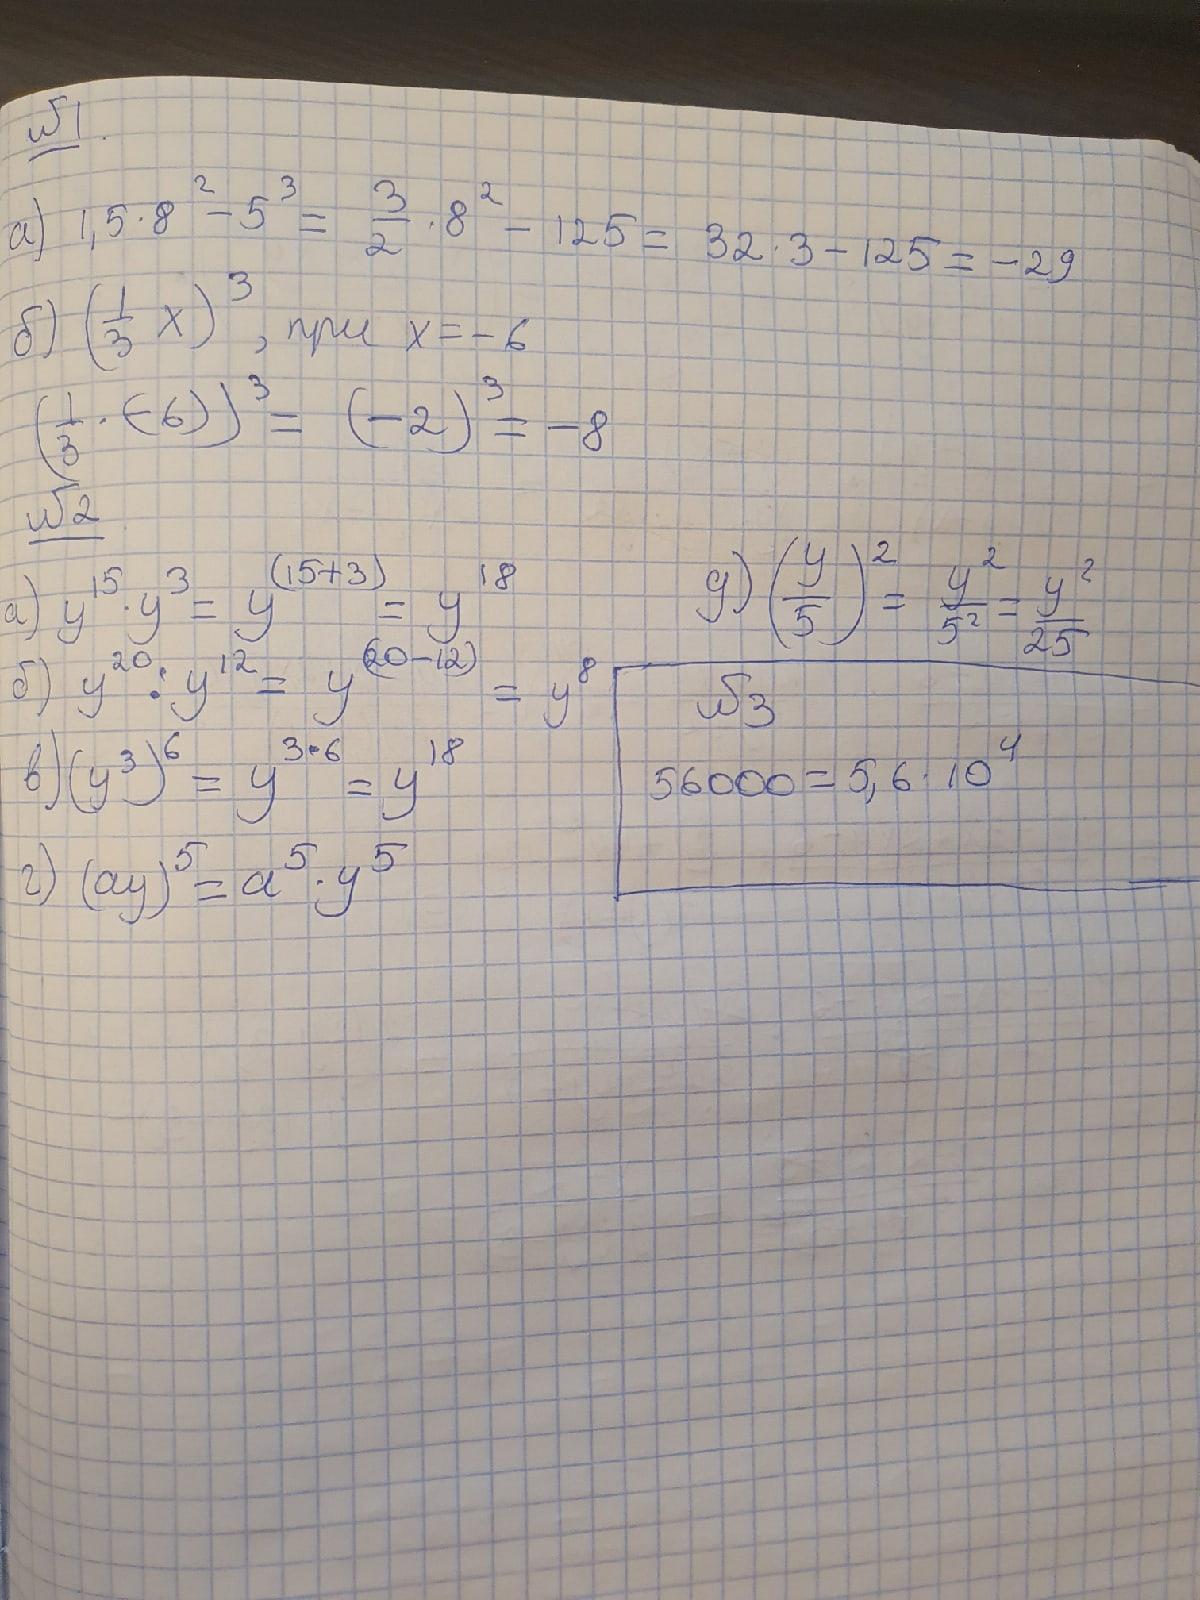 №1.
а) 1,5·8² - 5³ = 3/2 · 8² - 125 = 32·3 - 125 = -29
б) (1/3 x)³, при x = -6
(1/3 · (-6))³ = (-2)³ = -8
№2
а) y¹⁵·y³ = y⁽¹⁵⁺³⁾ = y¹⁸
б) y²⁰ : y¹² = y⁽²⁰⁻¹²⁾ = y⁸
в) (y³)⁶ = y^3·6 = y¹⁸
г) (ay)⁵ = a⁵·y⁵
д) (y/5)² = y²/5² = y²/25
№3
56000 = 5,6·10⁴